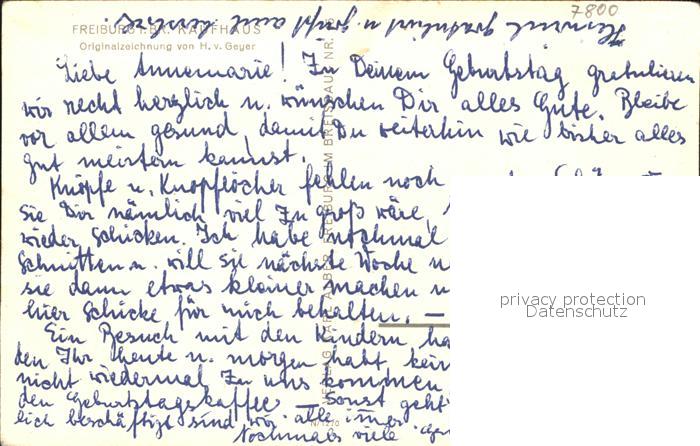 7800
Heinrich gratuliert u. grüßt auch herzlich.
FREIBURG i. BR. KAUFHAUS
Originalzeichnung von H. v. Geyer
Liebe Annemarie! Zu Deinem Geburtstag gratulieren
wir recht herzlich u. wünschen Dir alles Gute. Bleibe
vor allem gesund, damit Du weiterhin wie bisher alles
gut meistern kannst.
Knöpfe u. Knopflöcher fehlen noch
sie Dir nämlich viel zu groß wäre,
wieder schicken. Ich habe nochmal
schnitten u. will sie nächste Woche
sie dann etwas kleiner machen
hier schicke für mich behalten. —
Ein Besuch mit den Kindern
den Ihr heute u. morgen habt
nicht wiedermal zu uns kommen
den Geburtstagskaffee — Sonst geht
lich beschäftigt sind wir alle immer
Nochmals viele
N/1270
privacy protection
Datenschutz